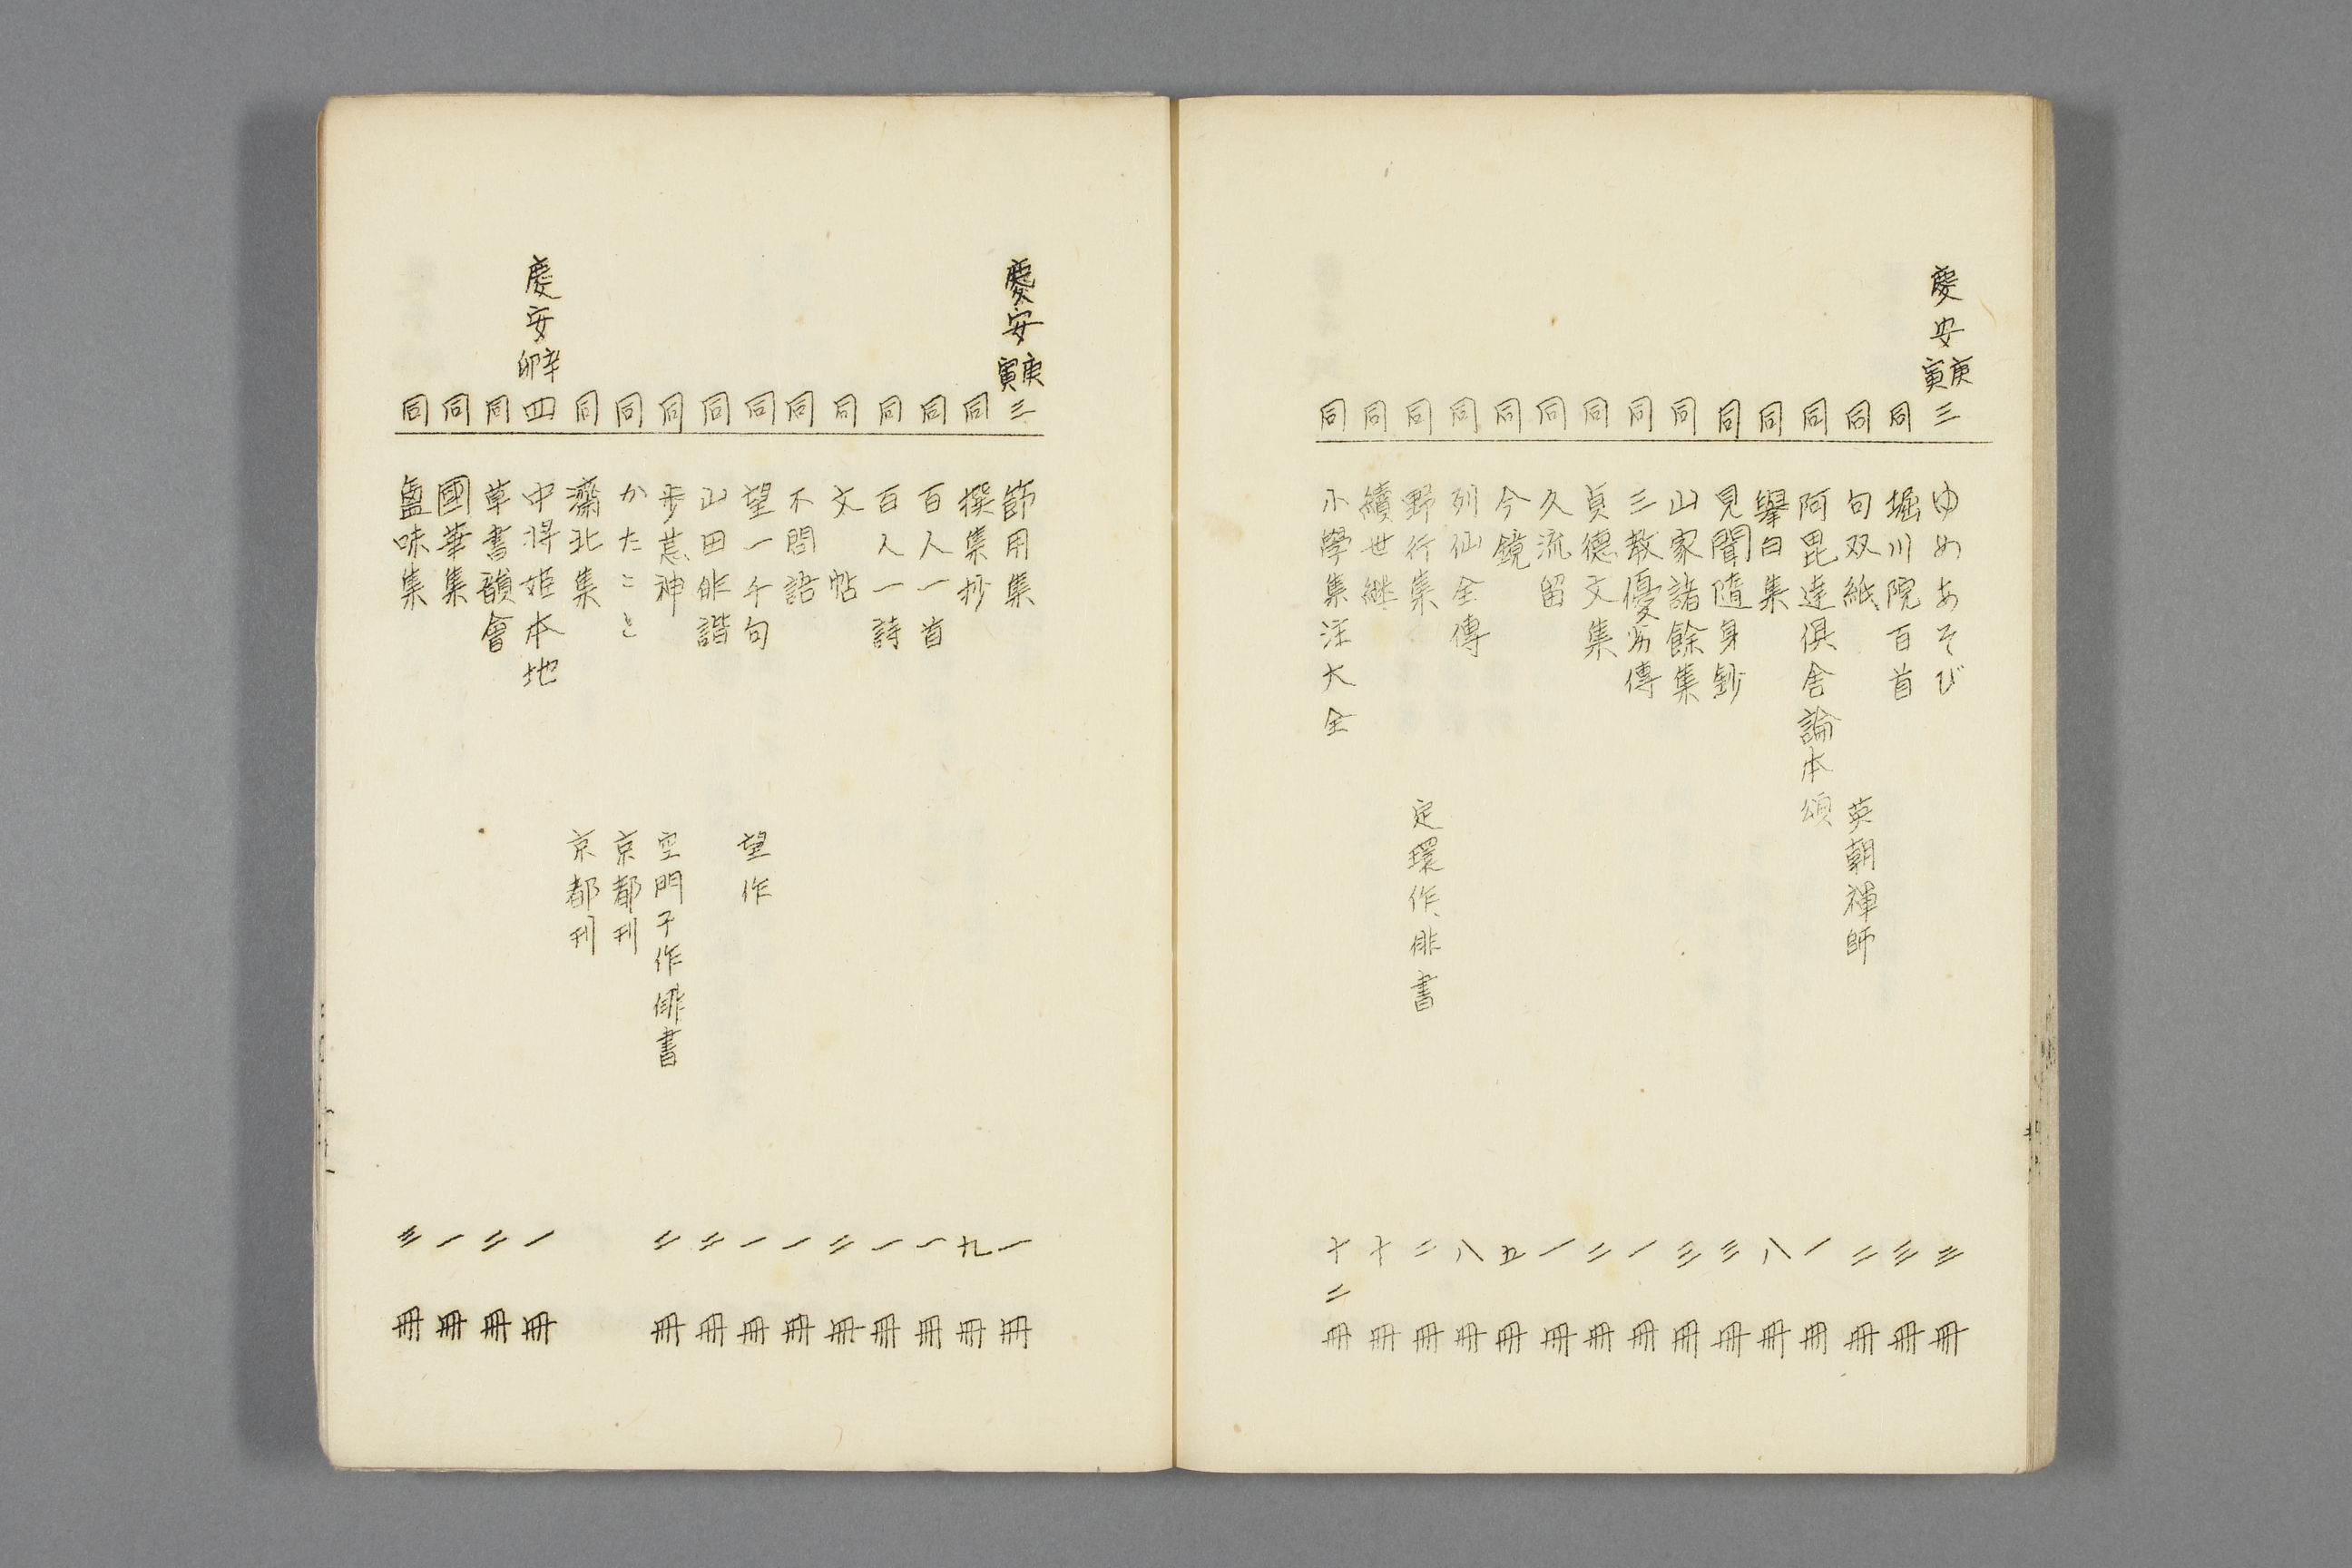 慶安庚寅三 ゆめあそび 三冊
同 堀川院百首 三冊
同 句双紙 英朝禅師 二冊
同 阿毘達俱舍論本頌 一冊
同 擧白集 八冊
同 見聞隨身鈔 三冊
同 山家諸餘集 三冊
同 三教優劣傳 一冊
同 貞德文集 二冊
同 久流留 一冊
同 今鏡 五冊
同 列仙全傳 八冊
同 野行集 定環作、俳書 二冊
同 續世継 十冊
同 小學集注大全 十二冊
慶安庚寅三 節用集 一冊
同 撰集抄 九冊
同 百人一首 一冊
同 百人一詩 一冊
同 文帖 二冊
同 不問語 一冊
同 望一千句 望作 一冊
同 山田俳諧 二冊
同 歩荒神 空門子作俳書 二冊
同 かたこと 京都刊
同 齋北集 京都刊
慶安辛卯四 中将姫本地 一冊
同 草書韻會 二冊
同 國華集 一冊
同 盬味集 三冊